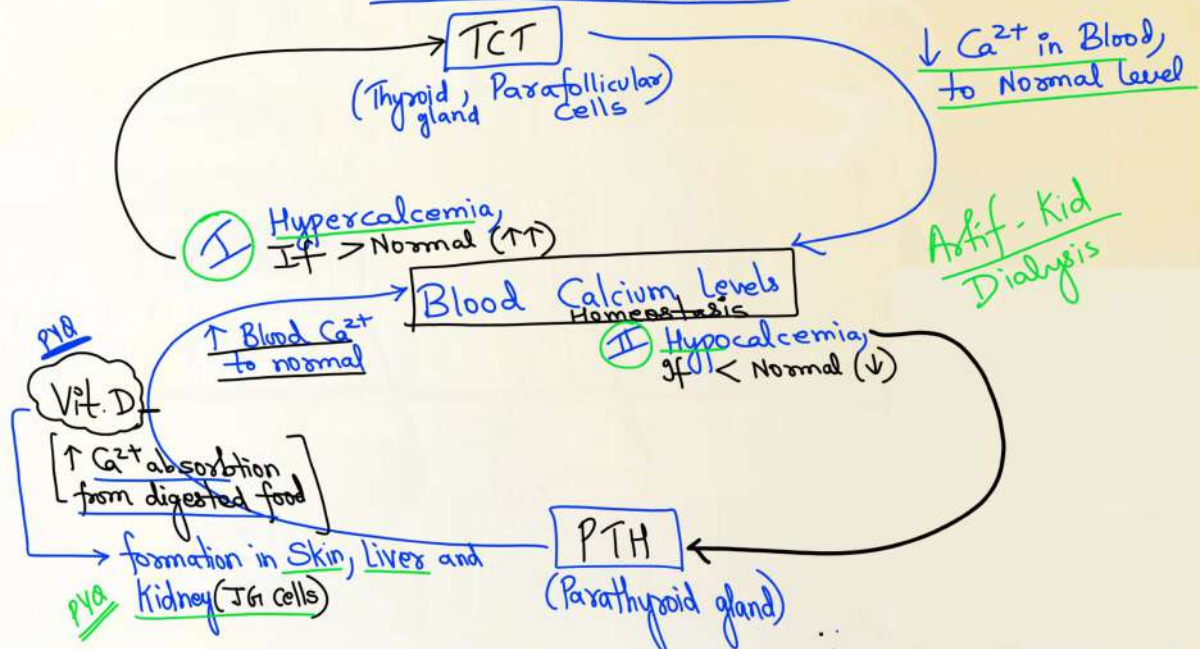 TCT
(Thyroid gland, Parafollicular Cells)
↓ Ca²⁺ in Blood,
to Normal Level
Artif - Kid
Dialysis
I Hypercalcemia,
If > Normal (↑↑)
Blood Calcium Levels
Homeostasis
↑ Blood Ca²⁺
to normal
II Hypocalcemia,
If < Normal (↓)
PYQ
Vit. D
[↑ Ca²⁺ absorbtion
from digested food]
formation in Skin, Liver and
PYQ Kidney (JG cells)
PTH
(Parathyroid gland)